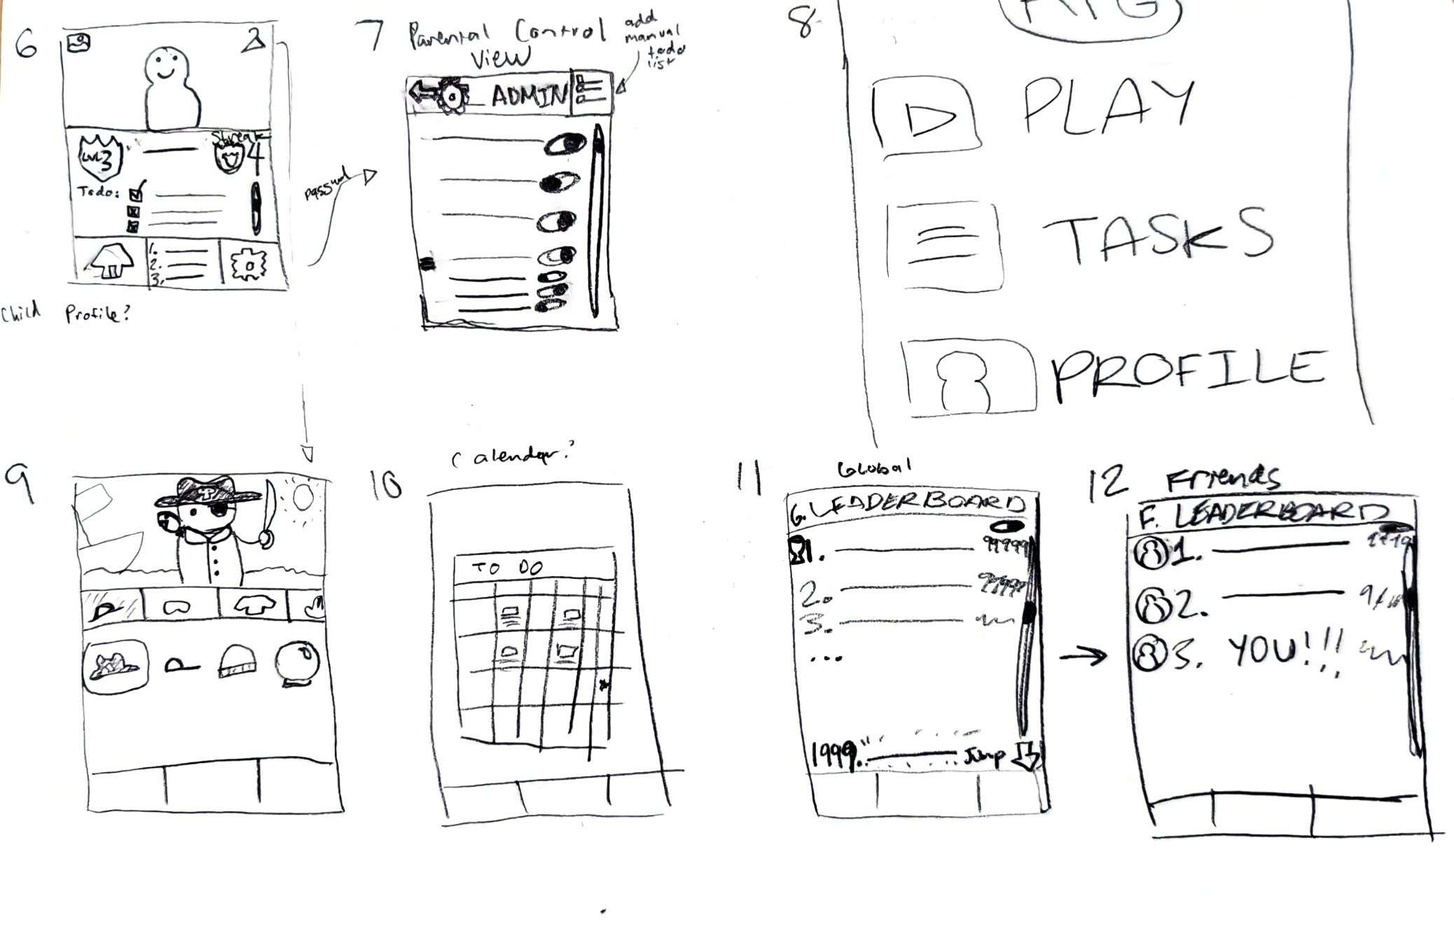 6
Streak
LVL 3
4
Todo:
1.
2.
3.
Child Profile?
7 Parental Control
View
add
manual
todo
list
ADMIN
8
PLAY
TASKS
PROFILE
9
10
Calendar?
TO DO
11
Global
G. LEADERBOARD
1.
99999
2.
3.
...
1999.
Jump
12
Friends
F. LEADERBOARD
1.
2.
3. YOU!!!